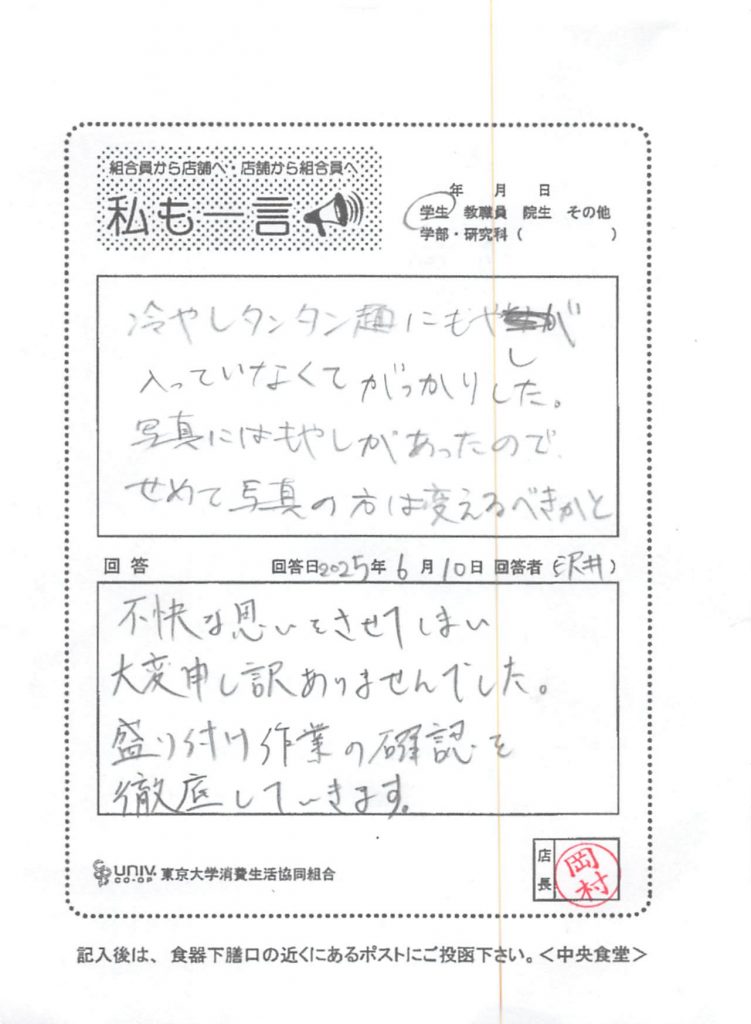 組合員から店舗へ・店舗から組合員へ
私も一言
年 月 日
学生 教職員 院生 その他
学部・研究科( )
冷やしタンタン麺にもやしが
入っていなくてがっかりした。
写真にはもやしがあったので、
せめて写真の方は変えるべきかと
回答 回答日2025年6月10日 回答者(沢井)
不快な思いをさせてしまい
大変申し訳ありませんでした。
盛り付け作業の確認を
徹底していきます。
UNIV. CO-OP 東京大学消費生活協同組合
店長 岡村
記入後は、食器下膳口の近くにあるポストにご投函下さい。<中央食堂>